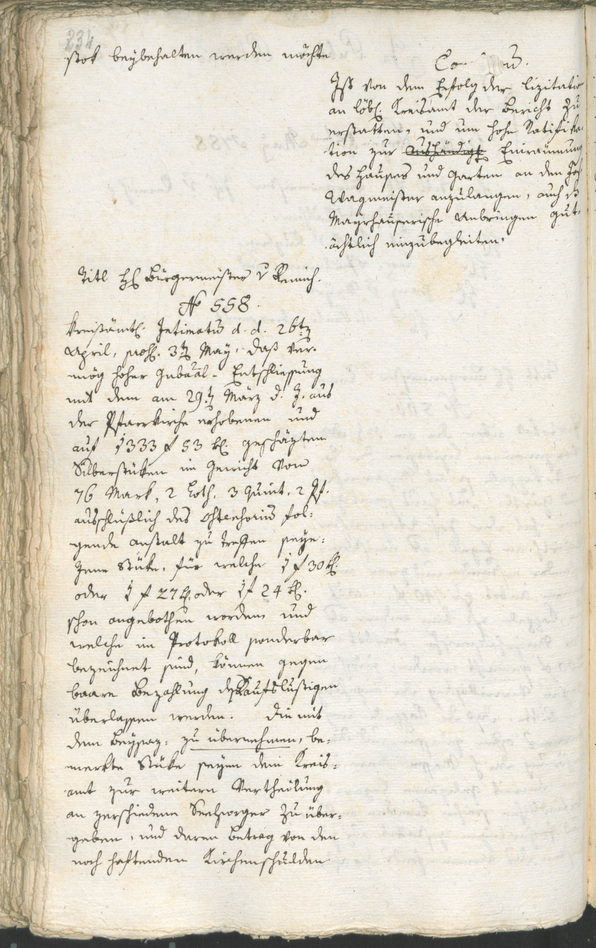 234
stok beybehalten werden möchte
Ist von dem Erfolg der Lizitatio
an löbl. Kreisamt der Bericht zu
erstatten, und um hohe Ratifika
tion zur aushändigt Einraumung
des Hauses und Garten an den Jos
Wagmeister anzulangen, auch d
Mayrhauserische Anbringen gut
ächtlich einzubegleiten.
Titl H Bürgermeister v
No 558.
Kreisämtl. Intimatum d. d. 26tn
April, prod. 3tn May, daß ver-
mög hoher Gubaal. Entschliessung
mit dem am 29tn März d. J. aus
der Pfarrkirche erhobenen, und
auf 1333 f 53 kr. geschäzten
Silberstüken im Gewicht von
76 Mark, 2 Loth, 3 Quint, 2 Pf.
ausschlüßlich des Ostensorium fol-
gende Anstalt zu treffen seye:
Jene Stüke, für welche 1 f 30 kr.
oder 1 f 27 kr. oder 1 f 24 kr.
schon angebothen worden und
welche im Protokoll sonderbar
bezeichnet sind, können gegen
baare Bezahlung des Kaufslustigen
überlassen werden. Die mit
dem Beysaz: zu übernehmen, be-
merkte Stüke seyen dem Kreis-
amt zur weitern Vertheilung
an verschiedene Seelsorger zu über-
geben, und deren Betrag von den
noch haftenden Kirchenschulden